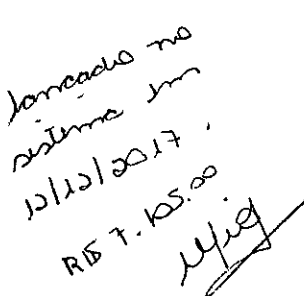 lancado no
sistema em
12/12/2017.
R$ 7.105.00